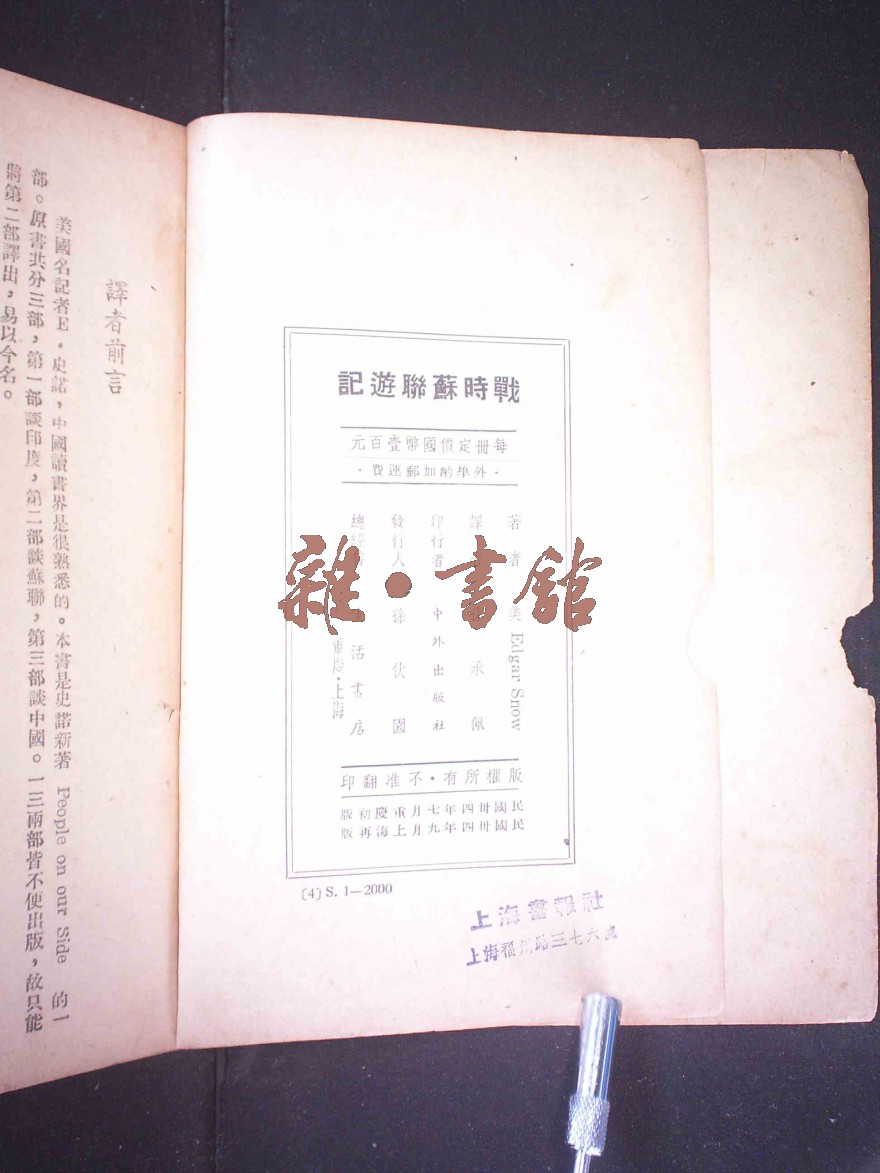 譯者前言
美國名記者E·史諾，中國讀書界是很熟悉的。本書是史諾新著 People on our Side 的一
部。原書共分三部，第一部談印度，第二部談蘇聯，第三部談中國。一三兩部皆不便出版，故只能
將第二部譯出，易以今名。
戰時蘇聯遊記
每冊定價國幣壹百元
·外埠酌加郵運費·
著者 美 Edgar Snow
譯 承佩
印行者 中外出版社
發行人 孫伏園
總經 活書店
重慶·上海
版權所有·不准翻印
民國卅四年七月重慶初版
民國卅四年九月上海再版
〔4〕S. 1—2000
上海書報社
上海福州路三七六號
雜·書館